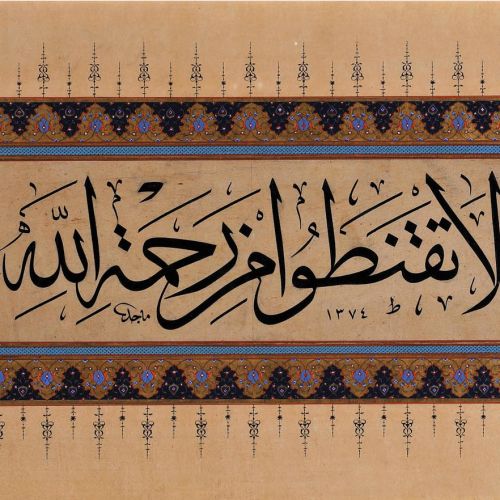 لا تقنطوا من رحمة الله
ماجد ١٣٧٤